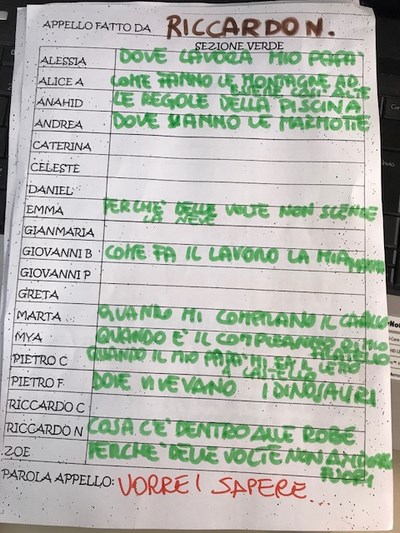 APPELLO FATTO DA RICCARDO N.
SEZIONE VERDE
ALESSIA DOVE LAVORA MIO PAPÀ
ALICE A COME FANNO LE MONTAGNE AD
ESSERE COSÌ ALTE
ANAHID LE REGOLE DELLA PISCINA
ANDREA DOVE VANNO LE MARMOTTE
CATERINA
CELESTE
DANIEL
EMMA PERCHÈ DELLE VOLTE NON SCENDE
LA NEVE
GIANMARIA
GIOVANNI B COME FA IL LAVORO LA MIA MAMMA
GIOVANNI P
GRETA
MARTA QUANDO MI COMPRANO IL CAVALLO
MYA QUANDO È IL COMPLEANNO DI MIO
FRATELLO
PIETRO C QUANDO IL MIO PAPÀ MI FA IL LETTO
A CASTELLO
PIETRO F DOVE VIVEVANO I DINOSAURI
RICCARDO C
RICCARDO N COSA C'È DENTRO ALLE ROBE
ZOE PERCHÈ DELLE VOLTE NON ANDIAMO
FUORI
PAROLA APPELLO: VORREI SAPERE...